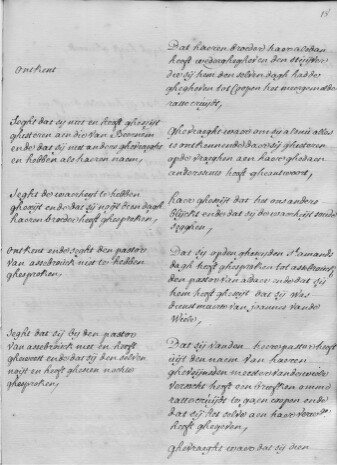 18
Dat haeren broeder haer alsdan
heeft wederghegheven den stuijver
die sij hem den selven dagh hadde
ghegheven tot coopen het voorgemelde
rattecruijdt,
ontkent
Seght dat sij niet en heeft gheseijt
ghisteren aen die van
ende dat sij niet anders ghevraeght
en hebben als haeren naem,
Ghevraeght waerom sij alsnu alles
is ontkennende daer sij ghisteren
op de vraeghen aen haer ghedaen
anderssints heeft gheantwoort,
Seght de waerheijt te hebben
gheseijt ende dat sij noijt dien dagh
haeren broeder heeft ghesproken,
haer gheseijt dat het ons anders
blijckt ende dat sij de waerheijt soude
segghen,
ontkent ende seght den pastor
van assebrouck niet te hebben
ghesproken,
Dat sij op den gheseijden St amands
dagh heeft ghesproken tot assebrouck
den pastor van aldaer ende dat sij
hem heeft gheseijt dat sij was
dienstmaerte van joannes van de
Seght dat sij bij den pastor
van assebrouck niet en heeft
gheweest ende dat sij den selven
noijt en heeft ghesien nochte
ghesproken,
Dat sij van den heere pastor heeft
uijt den naem van haeren
heeft
rattecruijdt te gaen coopen ende
dat sij het selve aen haer
heeft ghegeven,
Ghevraeght waer dat sij dien